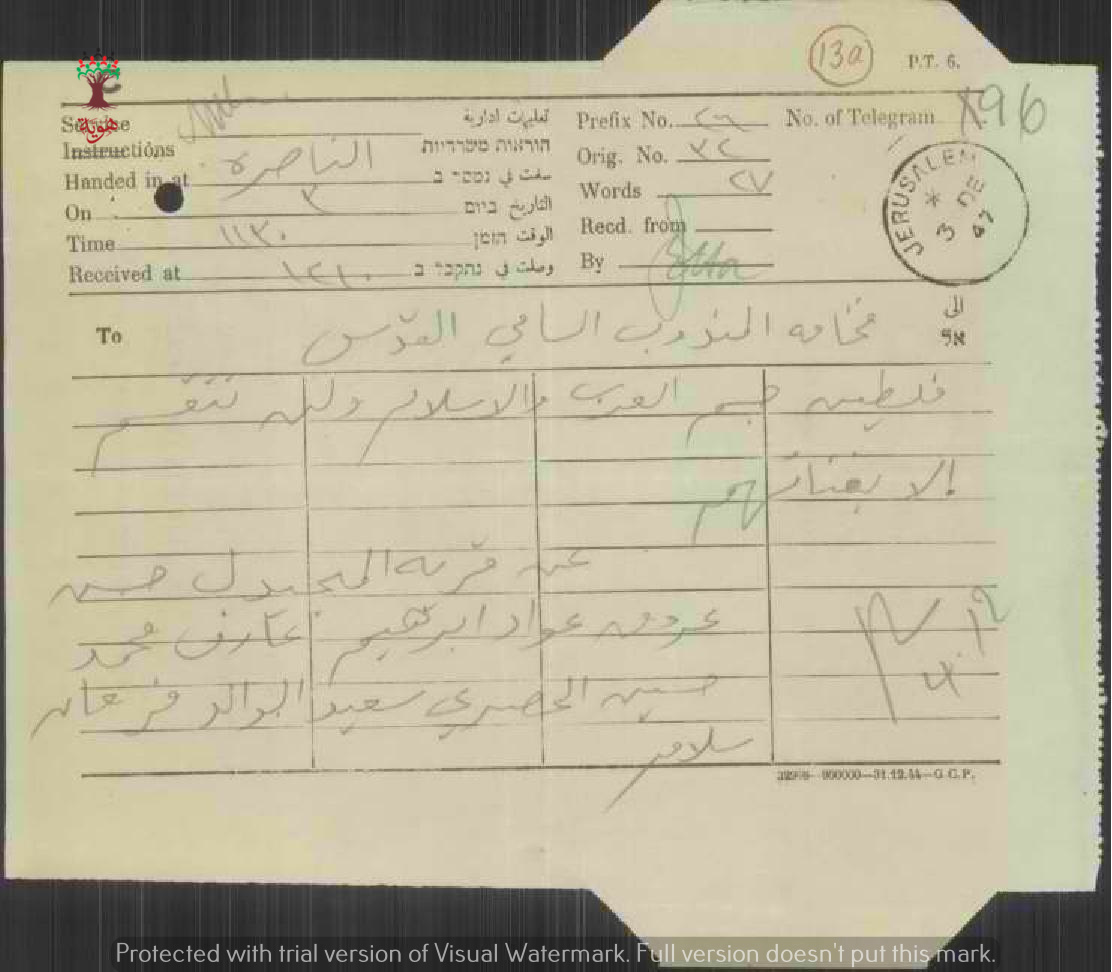 13a
P.T. 6.
هوية
Service
Instructions
تعليمات ادارية
הוראות משרדיות
Prefix No. ٢٦
No. of Telegram 196
Handed in at الناصره سلمت في נמסר ב
Orig. No. ٣٢
On ٣ التاريخ ביום
Words ٢٧
Time ١١٣٠ الوقت הזמן
Recd. from
Received at ١٢١٠ وصلت في נתקבל ב
By
JERUSALEM
3 DE
47
To
الى
אל
فخامه المندوب السامي القدس
فلسطين جسم العرب والاسلام ولن تتقسم
الا بفنائهم
عن قريه المجيدل حسن
عواد ابراهيم عارف محمد
حسين الحصري سعيد
سلامه
32976—900000—31.12.44—G.C.P.
Protected with trial version of Visual Watermark. Full version doesn't put this mark.